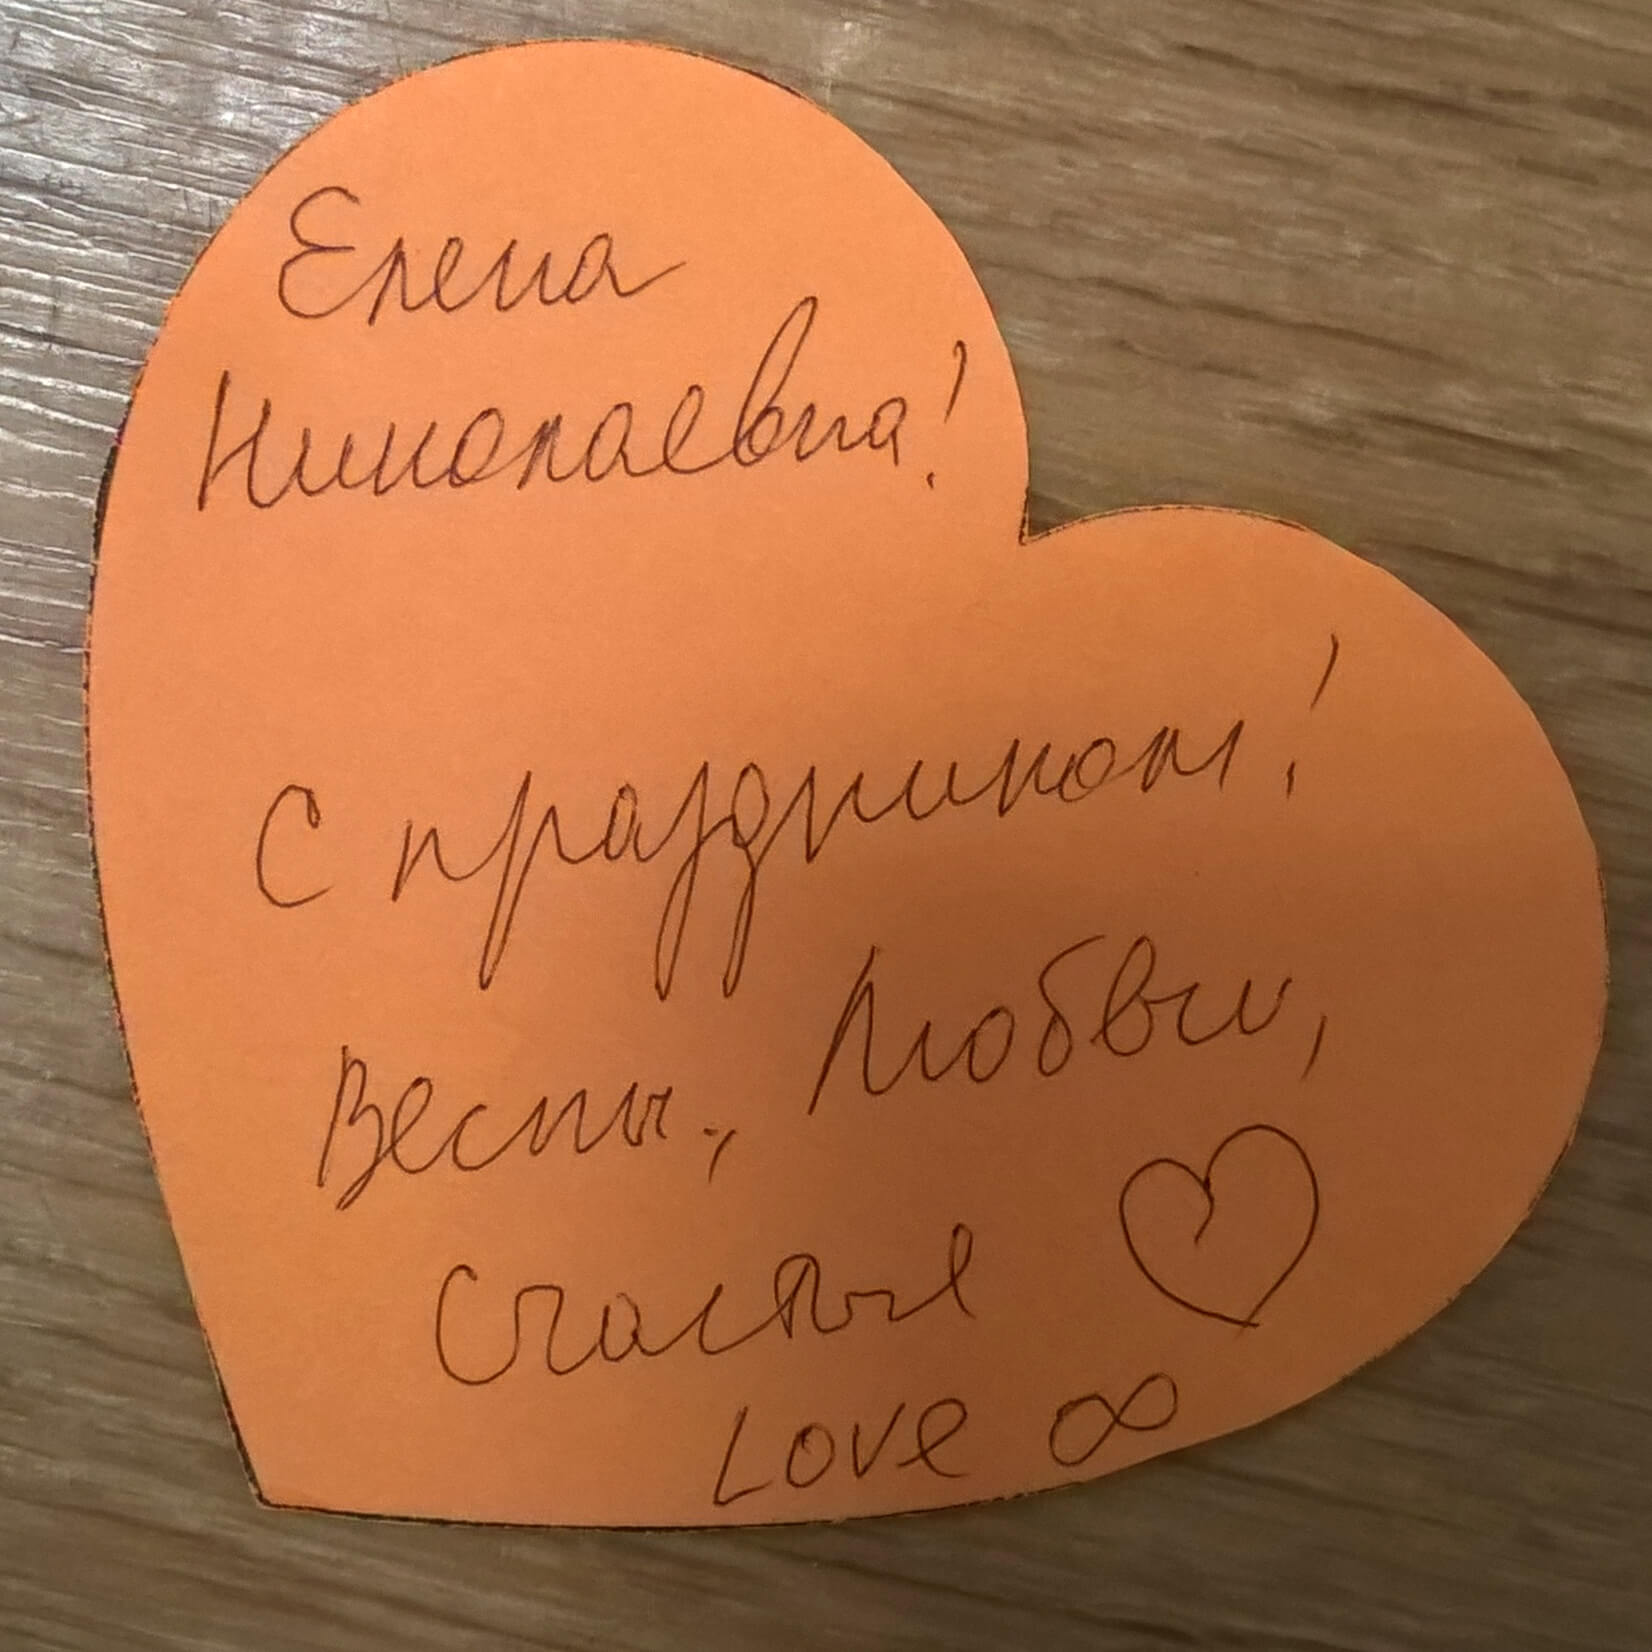 Елена
Николаевна!
С праздником!
Весны, Любви,
Счастье ♡
Love ∞